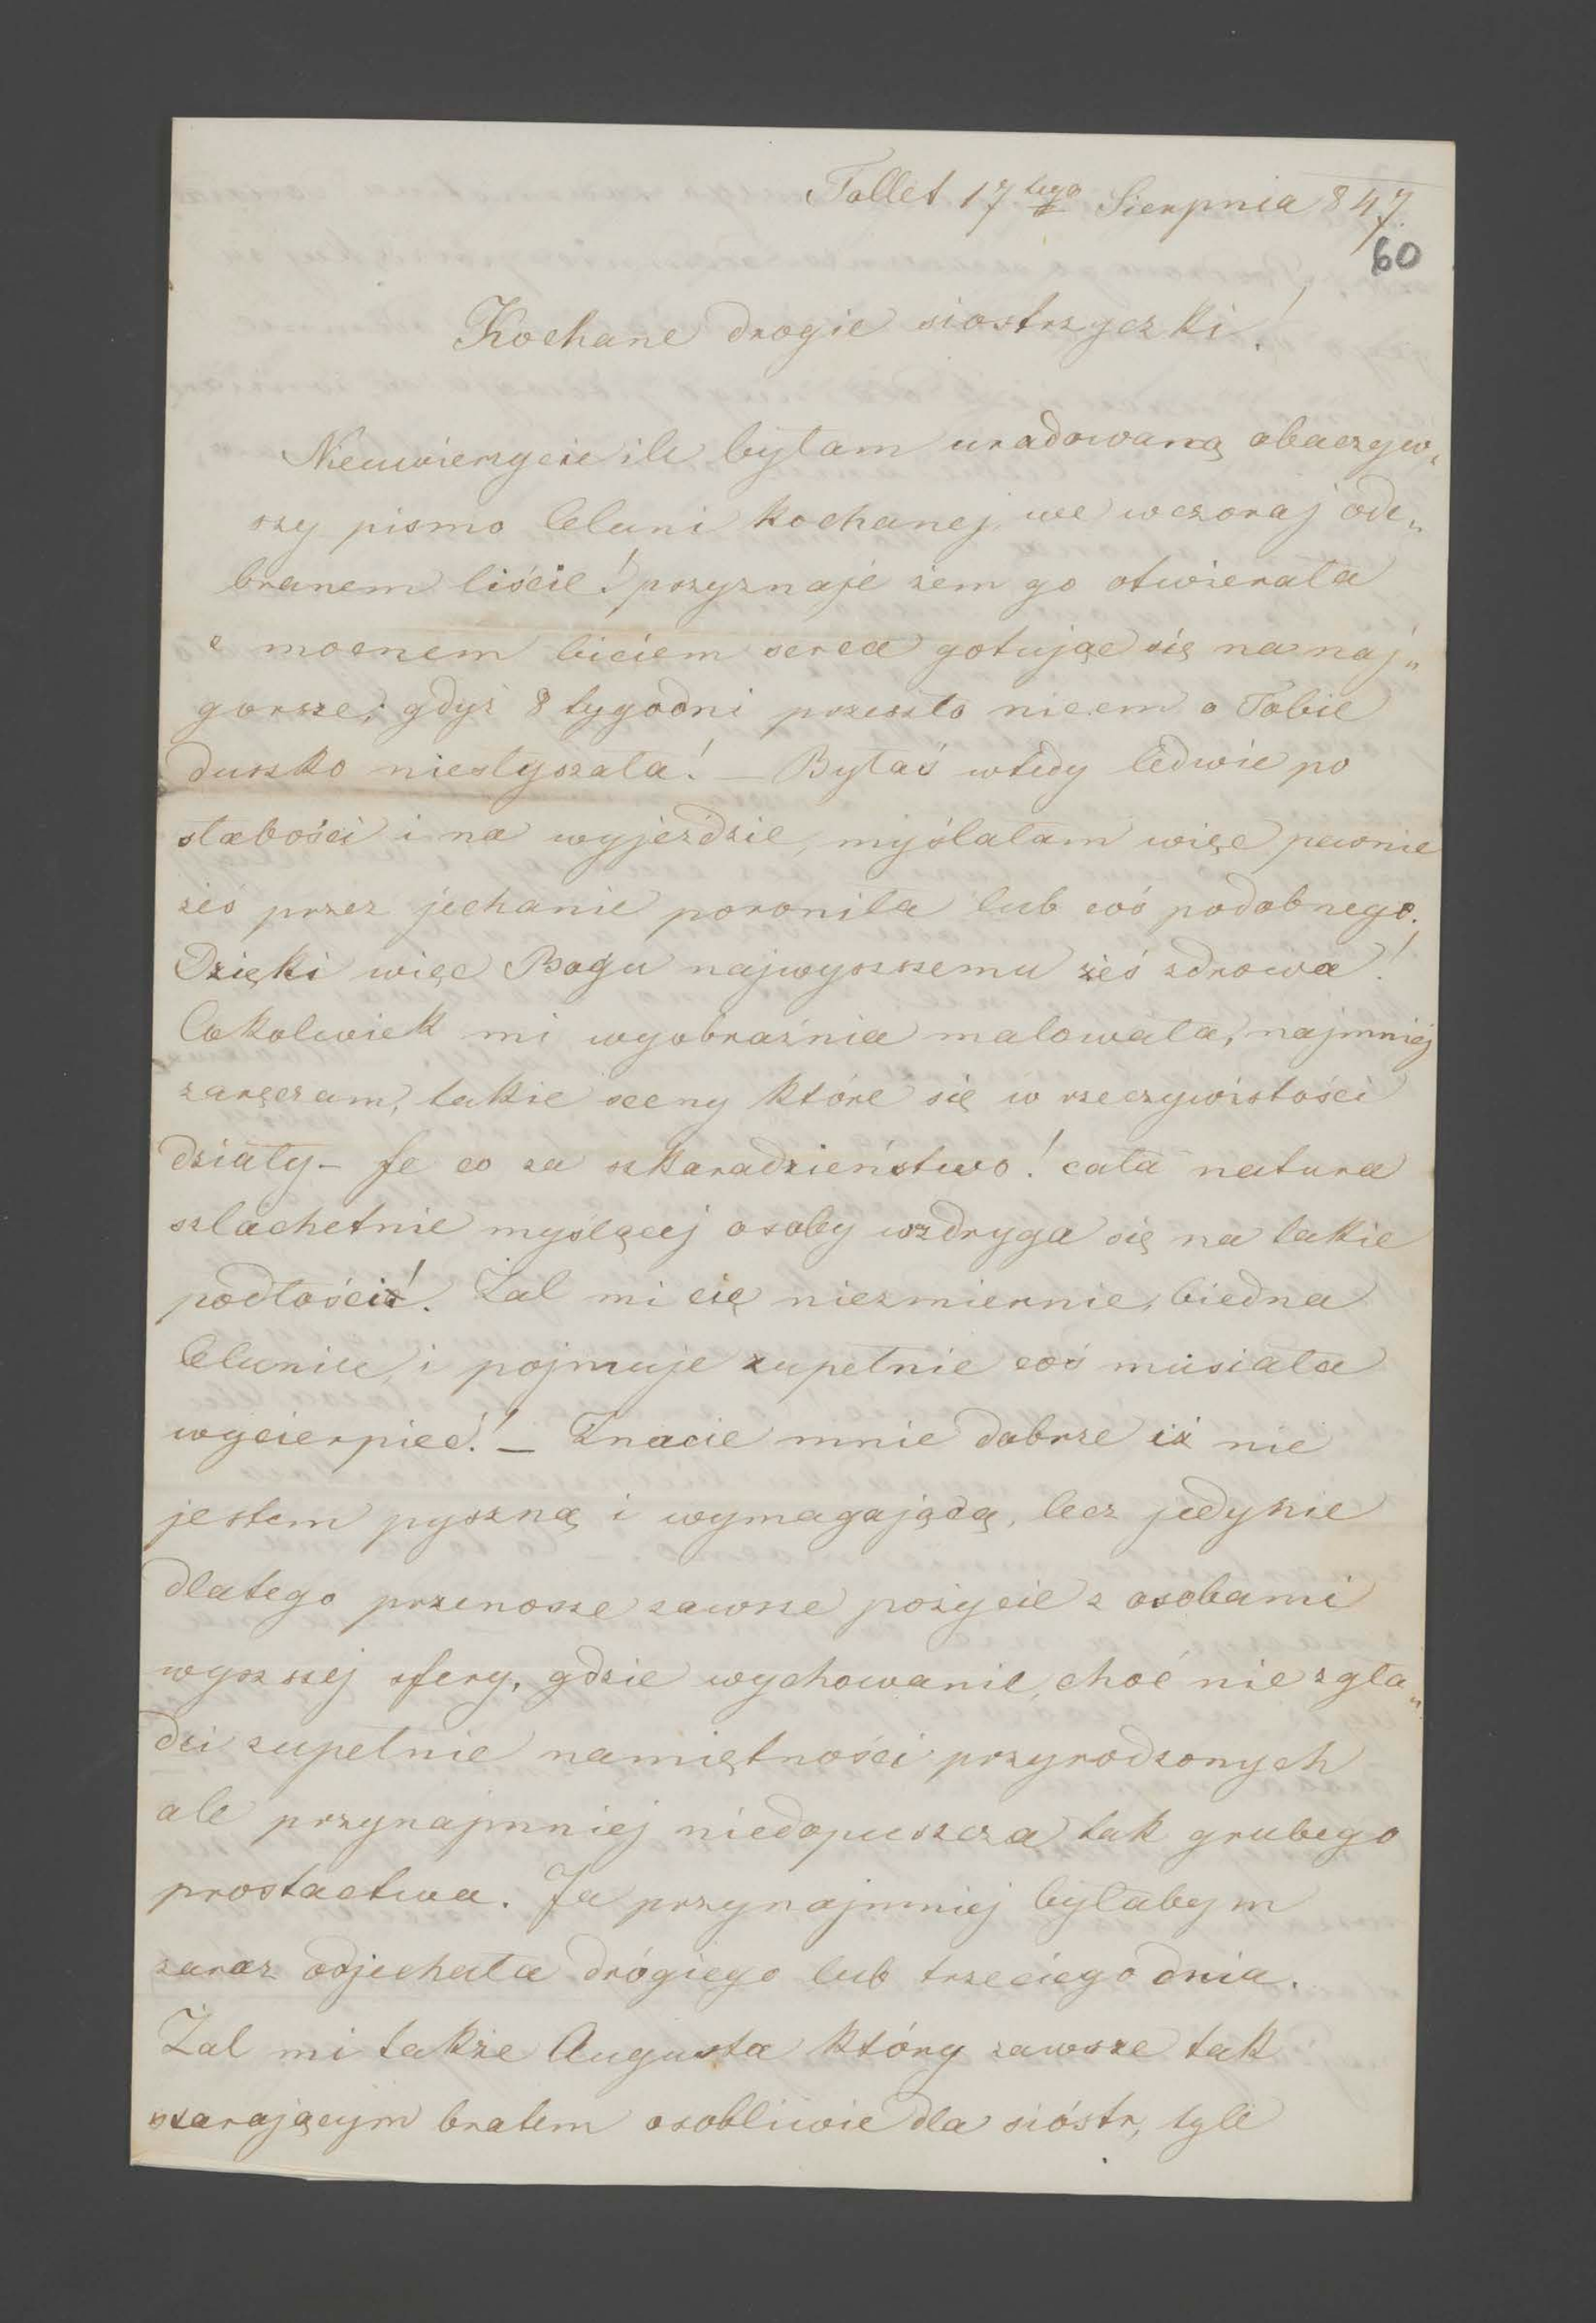 Tollet 17tego Sierpnia 847
60
Kochane drogie siostrzyczki!
Nieuwierzycie ile byłam uradowaną obaczyw„
szy pismo Celuni kochanej we wczoraj ode„
branem liście! przyznaje żem go otwierała
z mocnem biciem serca gotując się na naj„
gorsze, gdyż 8 tygodni przeszło nicem o Tobie
duszko niesłyszała! — Byłaś wtedy ledwie po
słabości i na wyjezdzie, myślałam więc pewnie
żeś przez jechanie poroniła lub coś podobnego.
Dzięki więc Bogu najwyższemu żeś zdrowa!
Cokolwiek mi wyobraźnia malowała, najmniej
zaręczam, takie sceny które się w rzeczywistości
działy — fe co za szkaradzieństwo! cała natura
szlachetnie myślącej osoby wzdryga się na takie
podłości! Żal mi cię niezmiernie, biedna
Celuniu, i pojmuje zupełnie coś musiała
wycierpieć! — Znacie mnie dobrze iż nie
jestem pyszną i wymagającą, lecz jedynie
dlatego przenosze zawsze pożycie z osobami
wyższej sfery, gdzie wychowanie, choć nie zgła„
dzi zupełnie namiętności przyrodzonych
ale przynajmniej niedopuszcza tak grubego
prostactwa. Ja przynajmniej byłabym
zaraz odjechała drógiego lub trzeciego dnia.
Żal mi także Augusta który zawsze tak
starającym bratem osobliwie dla sióstr, tyle